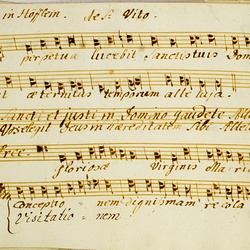 in Höfflein. de S. Vito.
perpetua lucebit Sanctis tuis Dom
et æternitas temporum alleluja.
Sancti et justi in Domino gaudete All.
Vos elegit Deus in hæreditatem sibi. All.
gloriosæ Virginis Mari
Conceptio nem digniſsimam recola
Visitatio nem